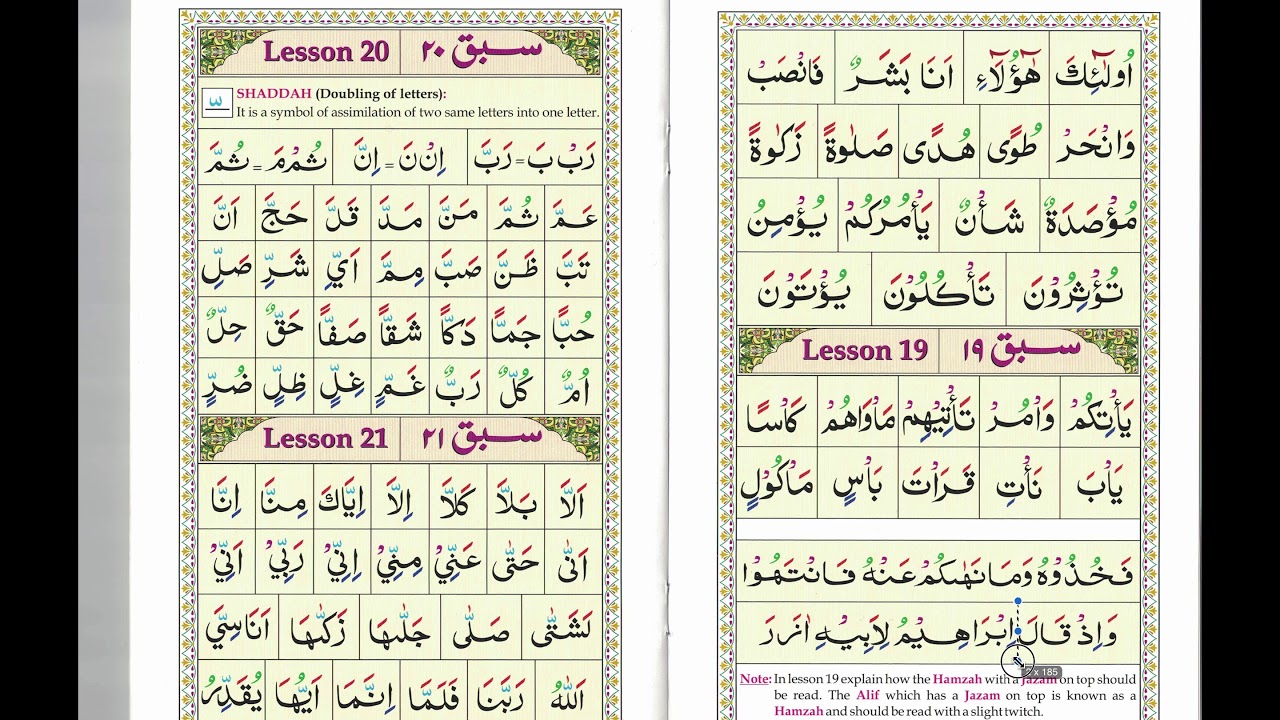 اُولٰٓئِكَ هٰٓؤُلَآءِ اَنَا بَشَرٌ فَانْصَبْ
وَانْحَرْ طُوًى هُدًى صَلٰوةً زَكٰوةً
مُؤْصَدَةٌ شَأْنٌ يَأْمُرُكُمْ يُؤْمِنُ
تُؤْثِرُوْنَ تَأْكُلُوْنَ يُؤْتَوْنَ
Lesson 19 سبق ١٩
يَأْتِكُمْ وَاْمُرْ تَأْتِيْهِمْ مَاْوَاهُمْ كَاْسًا
يَاْبَ نَأْتِ قَرَاْتَ بَاْسٍ مَاْكُوْلٍ
فَخُذُوْهُ وَمَا نَهٰىكُمْ عَنْهُ فَانْتَهُوْا
وَاِذْ قَالَ اِبْرَاهِيْمُ لِاَبِيْهِ اٰزَرَ
2 x 185
Note: In lesson 19 explain how the Hamzah with a Jazam on top should
be read. The Alif which has a Jazam on top is known as a
Hamzah and should be read with a slight twitch.
Lesson 20 سبق ٢٠
SHADDAH (Doubling of letters):
It is a symbol of assimilation of two same letters into one letter.
رَبْ بَ = رَبَّ اِنْ نَ = اِنَّ ثُمْ مَ = ثُمَّ
عَمَّ ثُمَّ مَنَّ مَدَّ قَلَّ حَجَّ اَنَّ
تَبَّ ظَنَّ صَبَّ مِمَّ اَيِّ شَرِّ صَلِّ
حُبًّا جَمًّا دَكًّا شَقًّا صَفًّا حَقٌّ حِلٌّ
اُمٌّ كُلٌّ رَبٌّ غَمٍّ غِلٍّ ظِلٍّ ضُرٍّ
Lesson 21 سبق ٢١
اَلَّا بَلَّا كَلَّا اِلَّا اِيَّاكَ مِنَّا اِنَّا
اَنّٰى حَتّٰى عَنِّيْ مِنِّيْ اِنِّيْ رَبِّيْ اَنِّيْ
لَشَتّٰى صَلّٰى جَلّٰىهَا زَكّٰىهَا اَنَاسِيَّ
اَللّٰهُ رَبَّنَا فَلَمَّا اِنَّمَا اَيُّهَا يُقَدِّرُ